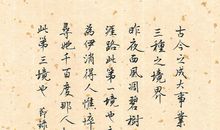 古今之成大事業
三種之境界
昨夜西風凋碧樹
涯路此第一境也
為伊消得人憔悴
尋他千百度那人
此第三境也 節錄